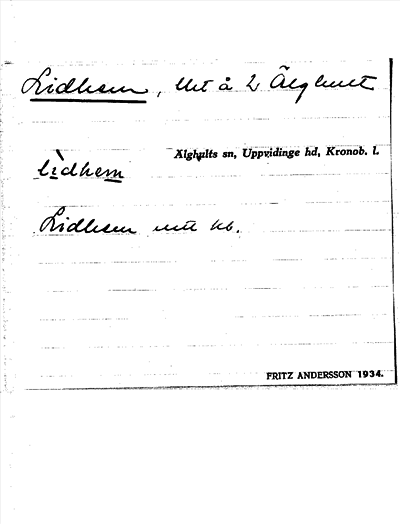 Lidhem, lht å 2 Älghult
Älghults sn, Uppvidinge hd, Kronob. L
lìdhem
Lidhem
FRITZ ANDERSSON 1934.